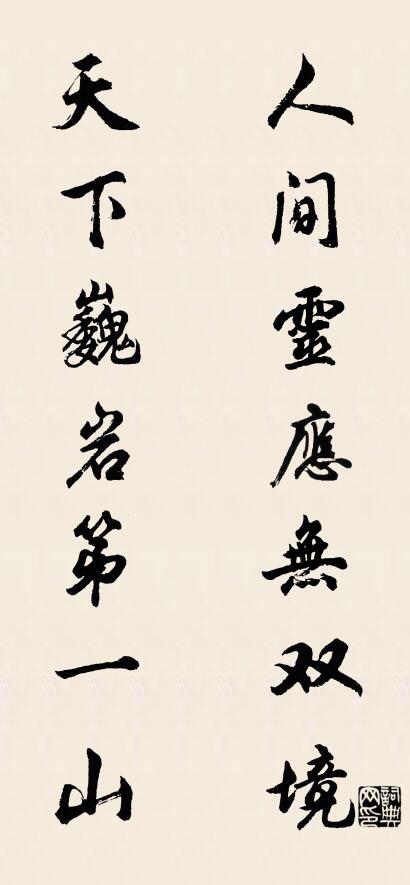 人间靈應無双境
天下巍岩第一山
詞典网印